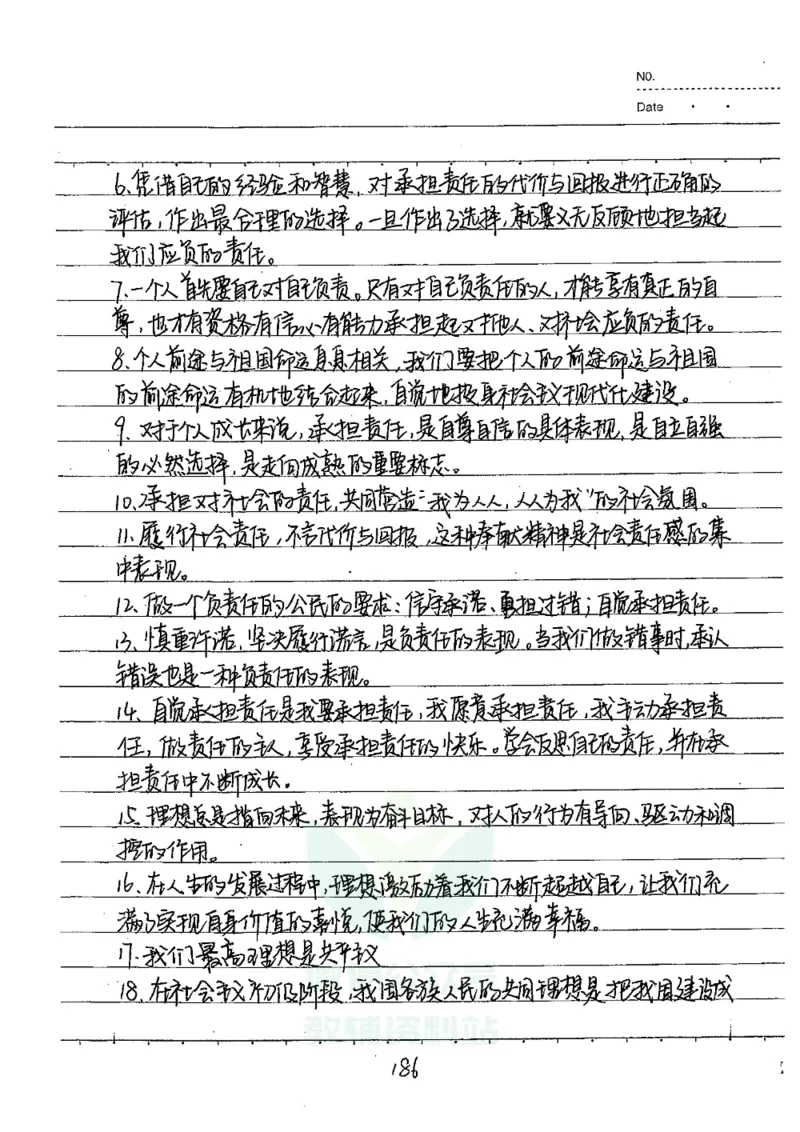 NO.
Date
6、凭借自己的经验和智慧，对承担责任的代价与回报进行正确的
评估，作出最合理的选择。一旦作出了选择，就要义无反顾地担当起
我们应负的责任。
7、一个人首先要自己对自己负责。只有对自己负责任的人，才能享有真正的自
尊，也才有资格有信心有能力承担起对他人、对社会应负的责任。
8、个人前途与祖国命运息息相关，我们要把个人的前途命运与祖国
的前途命运有机地结合起来，自觉地投身社会主义现代化建设。
9、对于个人成长来说，承担责任，是自尊自信的具体表现，是自立自强
的必然选择，是走向成熟的重要标志。
10、承担对社会的责任，共同营造"我为人人，人人为我"的社会氛围。
11、履行社会责任，不言代价与回报，这种奉献精神是社会责任感的集
中表现。
12、做一个负责任的公民的要求：信守承诺、勇担过错；自觉承担责任。
13、慎重许诺，坚决履行诺言，是负责任的表现。当我们做错事时，承认
错误也是一种负责任的表现。
14、自觉承担责任是我要承担责任，我愿意承担责任，我主动承担责
任，做责任的主人，享受承担责任的快乐。学会反思自己的责任，并在承
担责任中不断成长。
15、理想总是指向未来，表现为奋斗目标，对人的行为有导向、驱动和调
控的作用。
16、在人生的发展过程中，理想激励着我们不断超越自己，让我们充
满了实现自身价值的喜悦，使我们的人生充满幸福。
17、我们最高理想是共产主义
18、在社会主义初级阶段，我国各族人民的共同理想是把我国建设成
教辅资料站
186